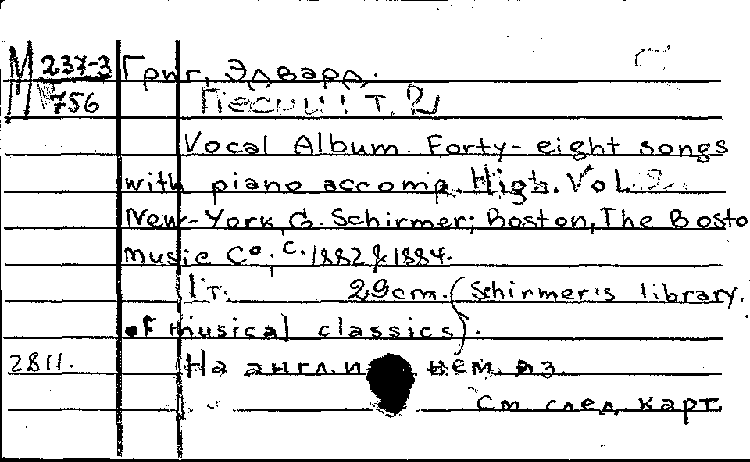 М 237-3 Григ, Эдвард.
756 Песни! т. 2
Vocal Album Forty-eight songs
with piano accomp. High. Vol. 2.
New-York, G. Schirmer; Boston, The Bosto
music Co; c. 1882 & 1884.
1 т. 29cm. (Schirmer's library.
of musical classics).
2811. На англ. и нем. яз.
См. след. карт.